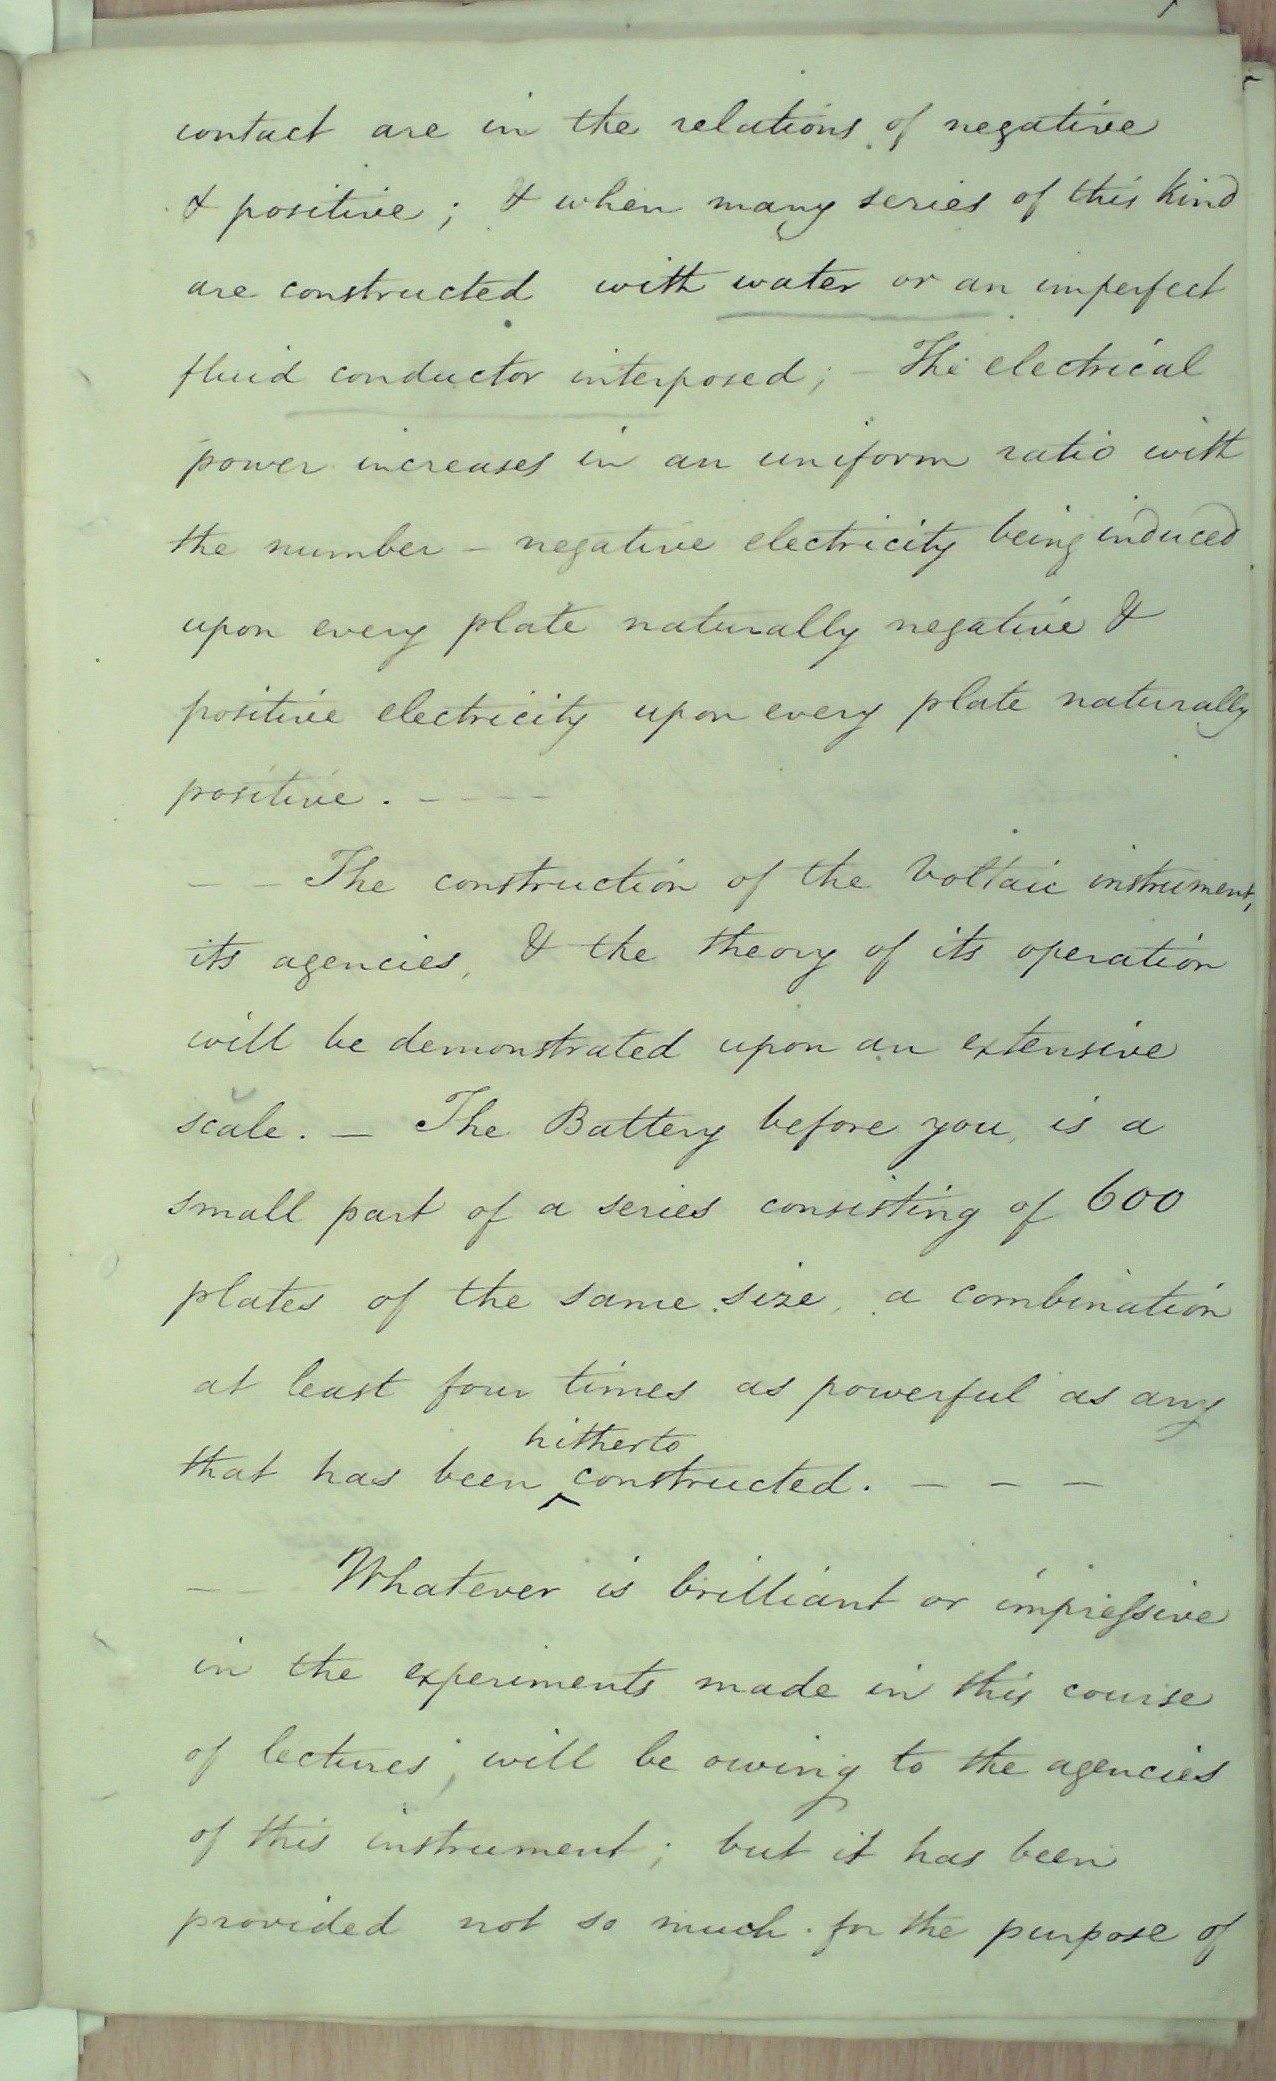 contact are in the relations of negative
& positive; & when many series of this kind
are constructed with water or an imperfect
fluid conductor interposed; – The electrical
power increases in an uniform ratio with
the number – negative electricity being induced
upon every plate naturally negative &
positive electricity upon every plate naturally
positive. – – – –
– – The construction of the Voltaic instrument,
its agencies, & the theory of its operation
will be demonstrated upon an extensive
scale. – The Battery before you is a
small part of a series consisting of 600
plates of the same size, a combination
at least four times as powerful as any
hitherto
that has been ^ constructed. – – –
– – Whatever is brilliant or impressive
in the experiments made in this course
of lectures, will be owing to the agencies
of this instrument; but it has been
provided not so much for the purpose of